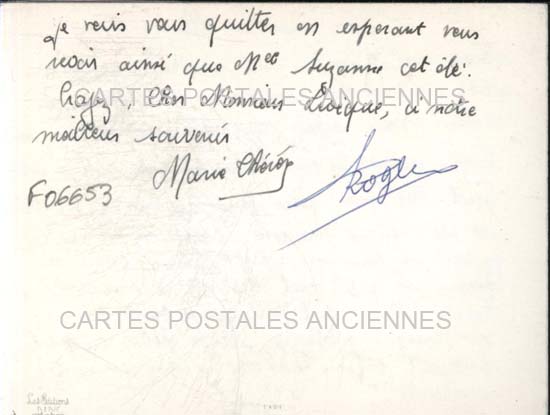 je vais vous quitter en esperant vous
revoir ainsi que Melle Suzanne cet été.
Croyez, Cher Monsieur Lucique, a notre
meilleur souvenir
Marie
Roger
F06653
CARTES POSTALES ANCIENNES
CARTES POSTALES ANCIENNES